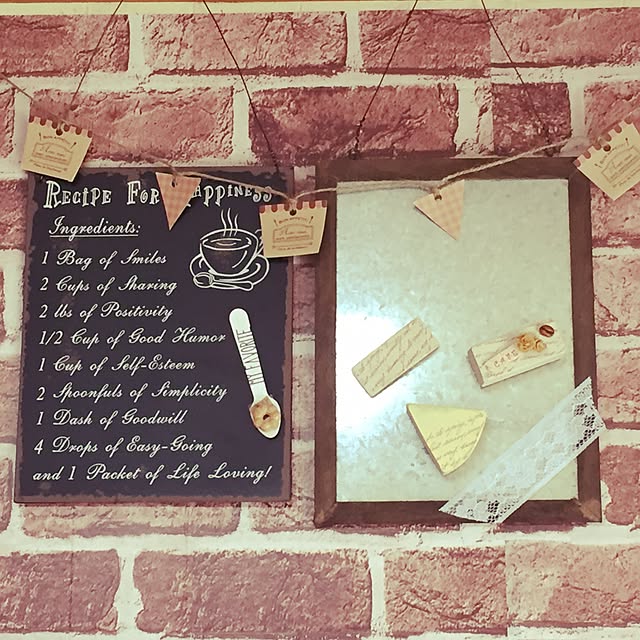 RECIPE FOR HAPPINESS
Ingredients:
1 Bag of Smiles
2 Cups of Sharing
2 lbs of Positivity
1/2 Cup of Good Humor
1 Cup of Self-Esteem
2 Spoonfuls of Simplicity
1 Dash of Goodwill
4 Drops of Easy-Going
and 1 Packet of Life Loving!
MY FAVORITE